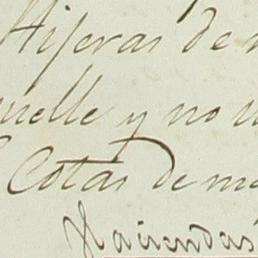 Hijeras de
uelle y no
Cotas de me
Haciendas